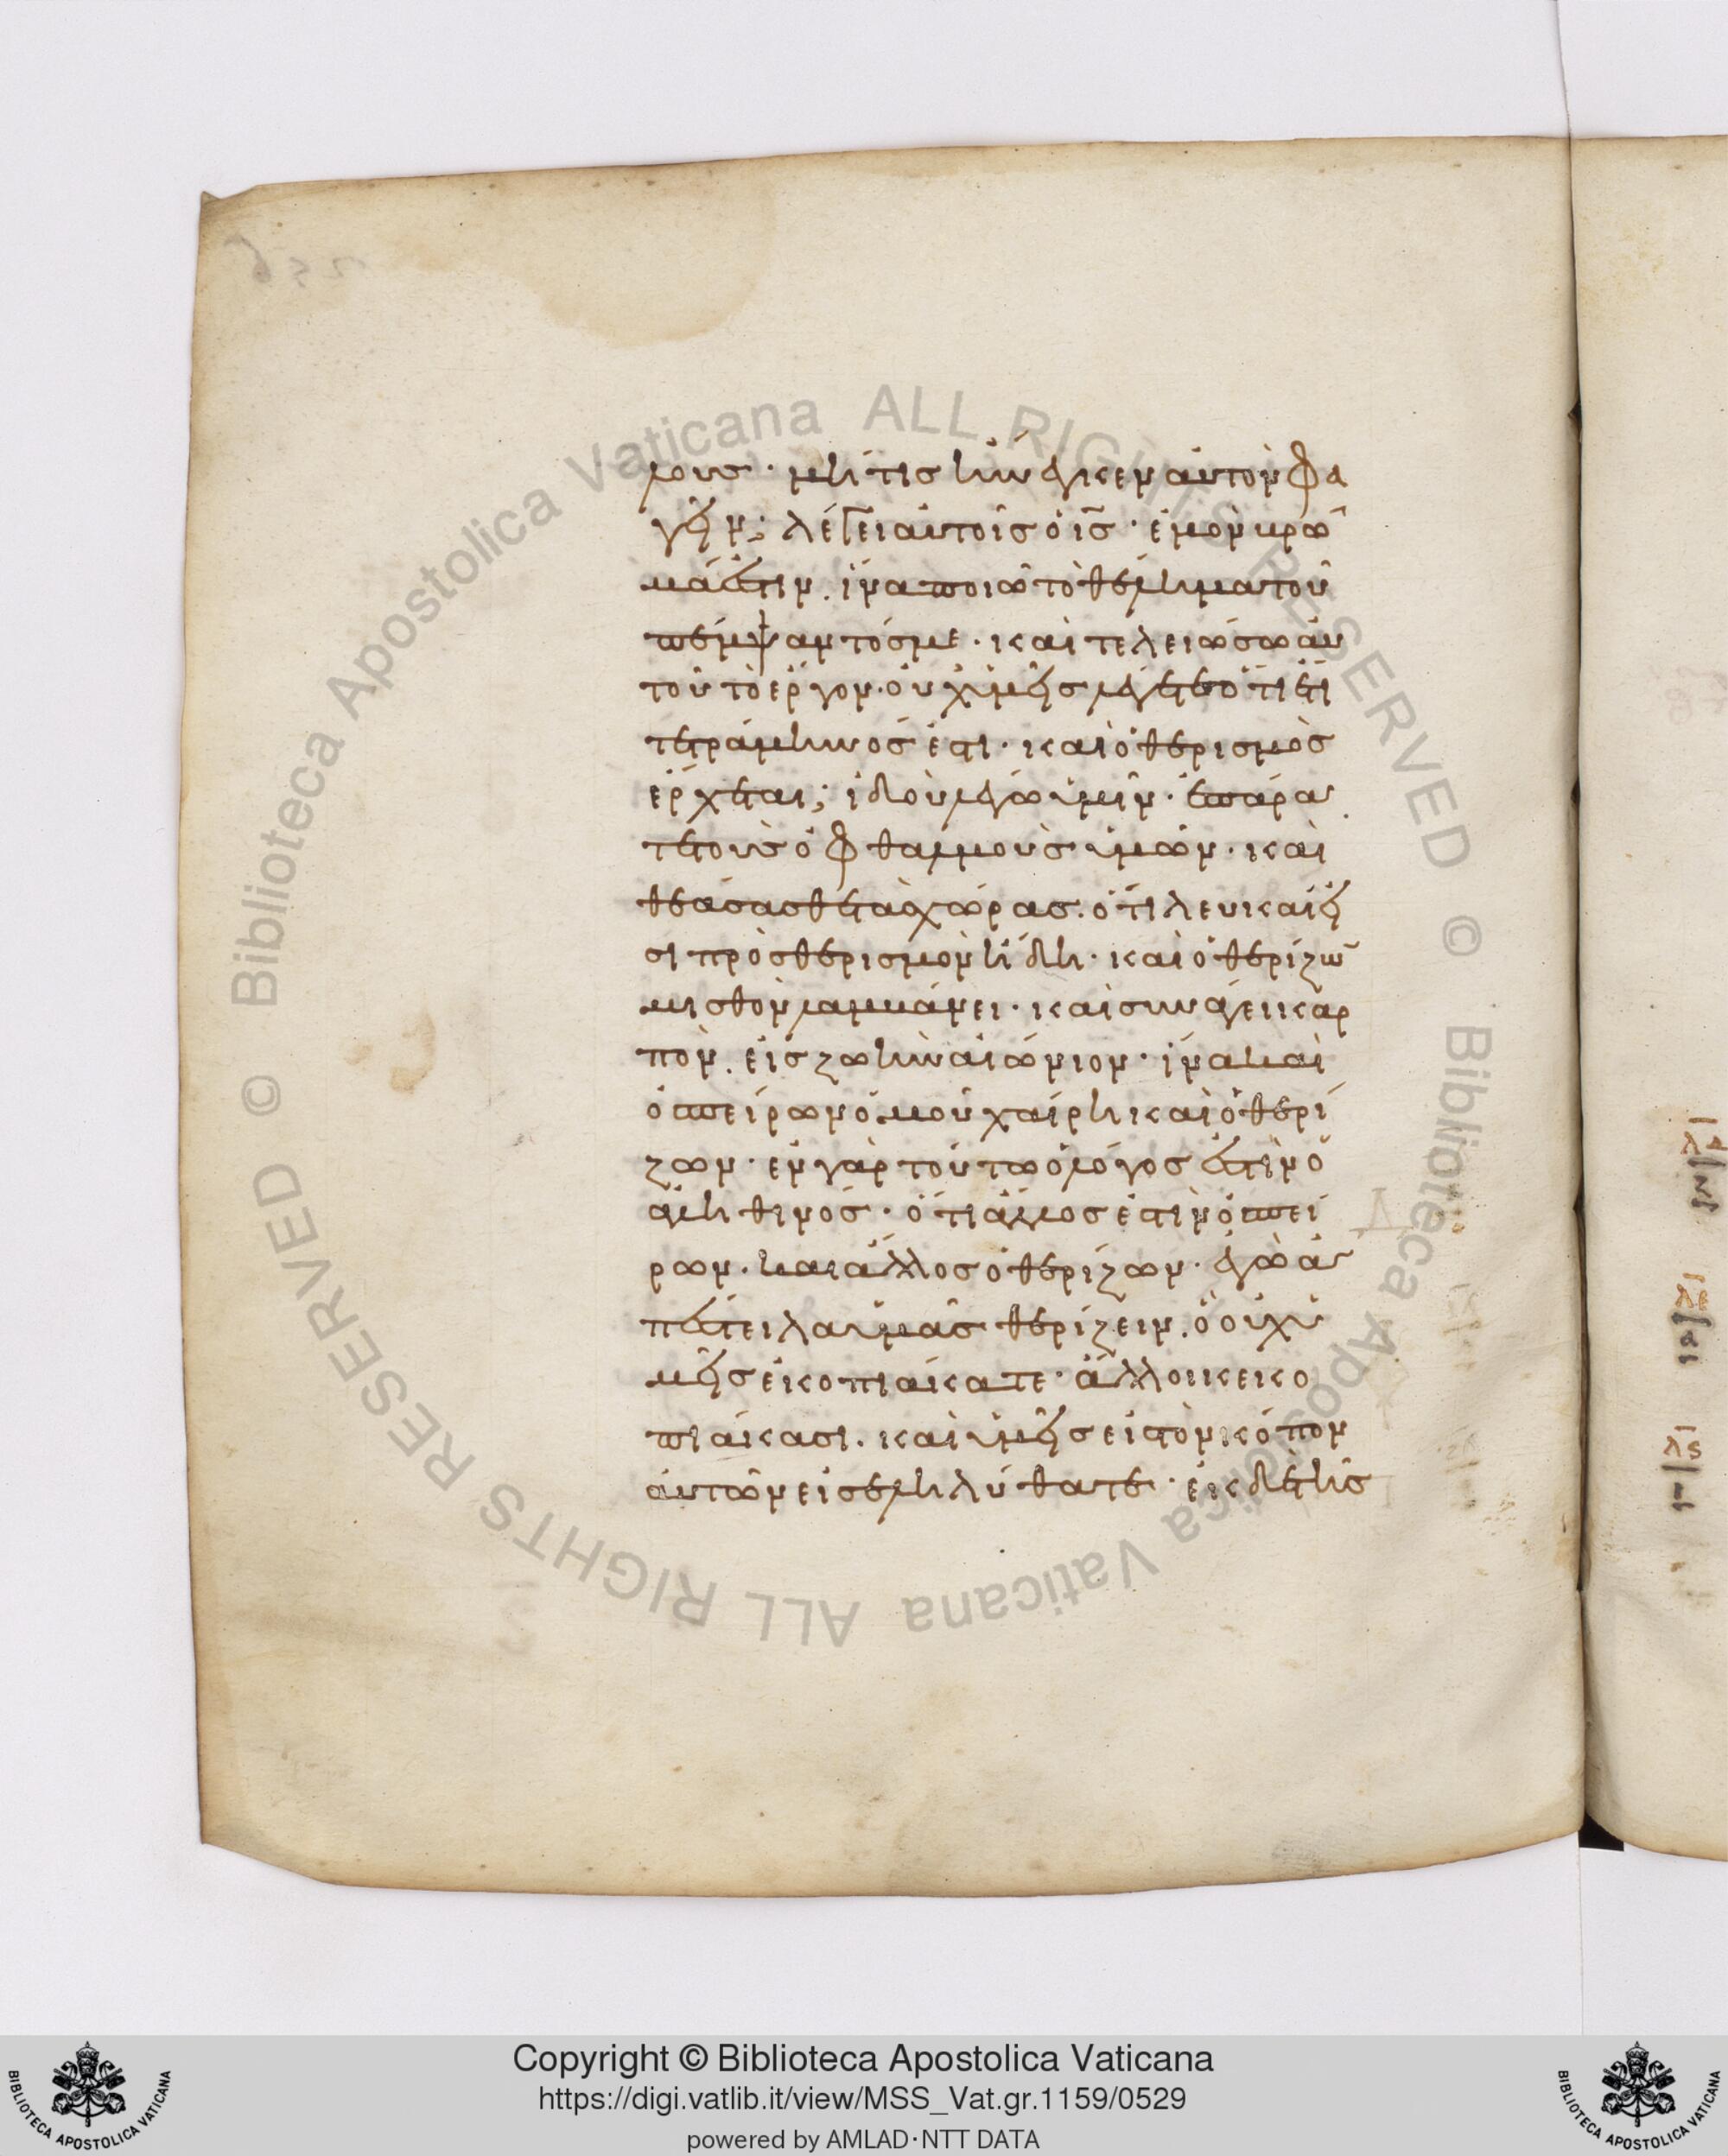 λους· μή τις ἤνεγκεν αὐτὸν φα
γεῖν; λέγει αὐτοῖς ὁ ις̅· ἐμὸν βρῶ
μά ἐστιν. ἵνα ποιῶ τὸ θέλημα τοῦ
πέμψαντός με· καὶ τελειώσω αὐ
τοῦ τὸ ἔργον. οὐχ ὑμεῖς λέγετε ὅτι ἔτι
τετράμηνός ἐστι· καὶ ὁ θερισμὸς
ἔρχεται; ἰδοὺ λέγω ὑμῖν· ἐπάρα
τε τοὺς ὀφθαλμοὺς ὑμῶν· καὶ
θεάσασθε τὰς χώρας. ὅτι λευκαί εἰ
σι πρὸς θερισμὸν ἤδη· καὶ ὁ θερίζω̅
μισθὸν λαμβάνει· καὶ συνάγει καρ
πὸν. εἰς ζωὴν αἰώνιον· ἵνα καὶ
ὁ σπείρων ὁμοῦ χαίρη καὶ ὁ θερί
ζων· ἐν γὰρ τούτω ὁ λόγος ἐστὶν ὁ
ἀληθινός· ὅτι ἄλλος ἐστὶν ὁ σπεί
ρων. καὶ ἄλλος ὁ θερίζων· ἐγὼ ἀ
πέστειλα ὑμᾶς θερίζειν. ὃ οὐχ ὑ
μεῖς κεκοπιάκατε· ἄλλοι κεκο
πιάκασι. καὶ ὑμεῖς εἰς τὸν κόπον
αὐτῶν εἰσεληλύθατε· ἐκ δὲ τῆς
Copyright © Biblioteca Apostolica Vaticana
https://digi.vatlib.it/view/MSS_Vat.gr.1159/0529
powered by AMLAD·NTT DATA
BIBLIOTECA APOSTOLICA VATICANA
BIBLIOTECA APOSTOLICA VATICANA
© Biblioteca Apostolica Vaticana ALL RIGHTS RESERVED
© Biblioteca Apostolica Vaticana ALL RIGHTS RESERVED